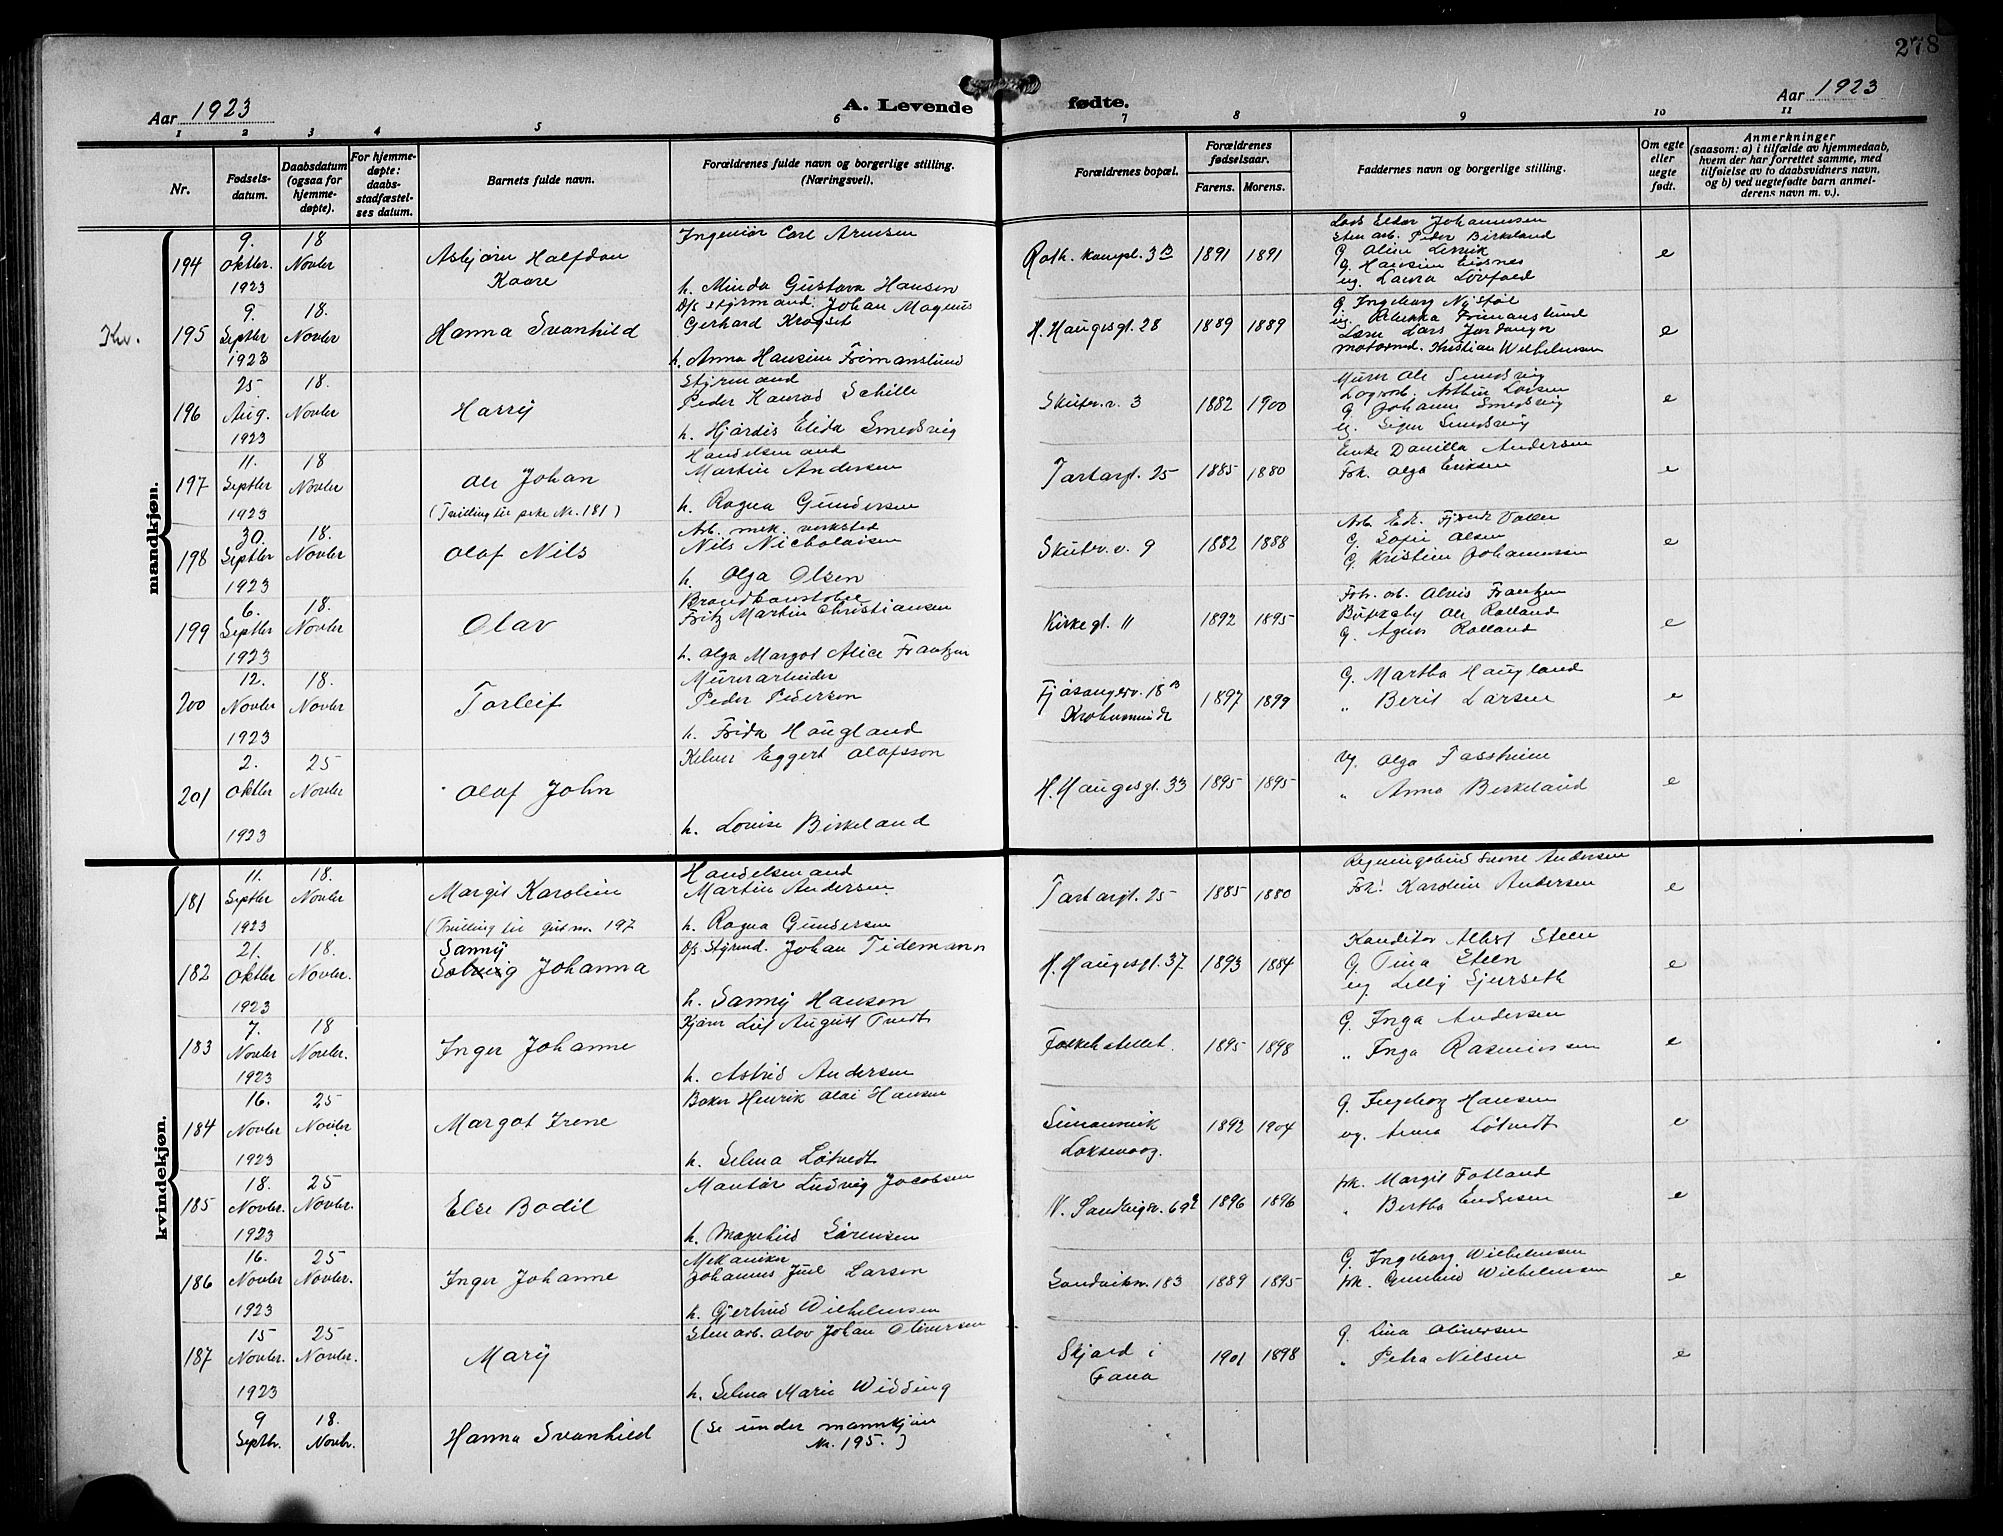 278
Aar 1923
A. Levende fødte.
Aar 1923
1 2 3 4 5 6 7 8 9 10 11
Nr.
Fødselsdatum.
Daabsdatum (ogsaa for hjemmedøpte).
For hjemmedøpte: daabsstadfæstelses datum.
Barnets fulde navn.
Forældrenes fulde navn og borgerlige stilling.
(Næringsvei).
Forældrenes bopæl.
Forældrenes fødselsaar.
Farens. Morens.
Faddernes navn og borgerlige stilling.
Om egte eller uegte født.
Anmerkninger
(saasom: a) i tilfælde av hjemmedaab,
hvem der har forrettet samme, med
tilføielse av to daabsvidners navn,
og b) ved uegtefødte barn anmelderens navn m. v.).
mandkjøn.
194
9. Oktber. 1923
18 Novber
Asbjørn Halfdan Kaare
Ingeniør Carl Arnesen
h. Minda Gustava Hansen
Roth. kampl. 3B
1891 1891
Johannesen
Sten arb. Peder Birkeland
G.
G.
ug. Laura
e
Kv.
195
9. Septber 1923
18. Novber
Hanna Svanhild
D/s styrmand. Johan Magnus
Gerhard Krogset
h. Anna Hansine Frimanslund
H. Haugesgt. 28
1889 1889
G. Ingeborg
ug. Rebekka Frimanslund
Lars
motormd. Kristian Wilhelmsen
e
196
25. Aug. 1923
18. Novber
Harry
Styrmand
Peder Konrad Schille
h. Hjørdis Elida Smedsvig
Skutev. v. 3
1882 1900
Murer Ole Smedsvig
Arthur Larsen
G. Johanne Smedsvig
ug. Smedsvig
e
197
11. Septber 1923
18 Novber
Ole Johan
(Tvilling til pike Nr. 181)
Handelsmand
Martin Andersen
h. Ragna Gundersen
Tartargt. 25
1885 1880
Enke Danilla Andersen
Frk. Olga Eriksen
e
198
30. Septber 1923
18. Novber
Olaf Nils
Arb. mek. verksted
Nils Nicholaisen
h. Olga Olsen
Skutev. v. 9
1882 1888
Arb.
G. Sofie Olsen
G. Kristine Johannessen
e
199
6. Septber 1923
18. Novber
Olav
Brandkonstabel
Fritz Martin Christiansen
h. Olga Margot Alice Frantzen
Kirkegt. 11
1892 1895
Fabr. arb. Alvis Frantzen
Ole Rolland
G. Agnes Rolland
e
200
12. Novber 1923
18. Novber
Torleif
Murerarbeider
Peder Pederson
h. Frida Haugland
Fjøsangerv. 18B
Krohnsminde
1897 1899
G. Martha Haugland
" Berit Larsen
e
201
2. Oktber 1923
25 Novber
Olaf John
Kelner Eggert Olafsson
h. Lovise Birkeland
H. Haugesgt. 33
1895 1895
Ug. Olga
" Anna Birkeland
e
kvindekjøn.
181
11. Septber 1923
18. Novber
Margit Karoline
(Tvilling til gut nr. 197
Handelsmand
Martin Andersen
h. Ragna Gundersen
Tartargt. 25
1885 1880
Regningsbud Andersen
Frk. Karoline Andersen
e
182
21. Oktber 1923
18. Novber.
Sanny
Solveig Johanna
D/s Styrmd. Johan Tidemann
h. Sanny Hanson
H. Haugesgt. 37
1893 1884
Konditor Albert Steen
G. Tina Steen
ug. Lilly Gjerseth
e
183
7. Novber 1923
18 Novber.
Inger Johanne
Kjører Leif August Tvedt
h. Astrid Andersen
1895 1898
G. Inga Andersen
" Inga Rasmussen
e
184
16. Novber 1923
25 Novber
Margot Irene
Baker Henrik Olai Hansen
h. Selma Løtvedt
Simonsvik
Laksevaag.
1892 1904
G. Ingeborg Hansen
ug. Anna Løtvedt
e
185
18. Novber. 1923
25 Novber.
Else Bodil
Montør Ludvig Jacobsen
h. Magnhild Sørensen
N. Sandvigsv. 69
1896 1896
frk. Margit Fotland
" Bertha Endresen
e
186
16. Novber 1923
25 Novber.
Inger Johanne
Mekaniker
Johannes Juul Larsen
h. Gjertrud Wilhelmsen
Sandviksv. 183
1889 1895
G. Ingeborg Wilhelmsen
frk. Gunhild Wilhelmsen
e
187
15 Novber. 1923
25 Novber.
Mary
Sten arb. Olav Johan Olinersen
h. Selma Marie Widding
Skjold i
Fana
1901 1898
G. Lina Olinersen
" Petra Nilsen
e
9 Septbr.
18. Novbr.
Hanna Svanhild
(Se under mannkjøn
Nr. 195.)